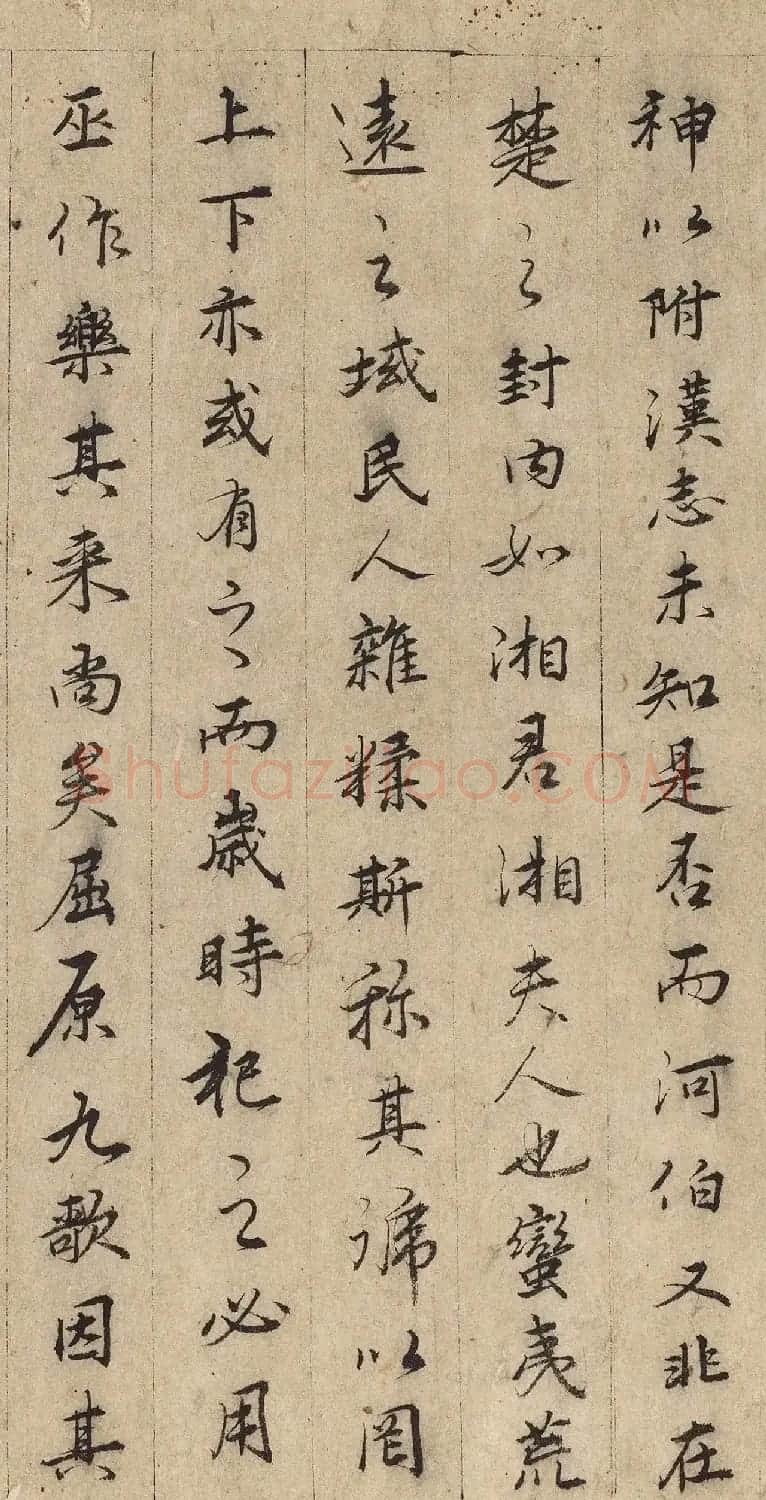 神以附漢志未知是否而河伯又非在
楚之封内如湘君湘夫人也蠻夷荒
遠之域民人雜糅斯称其號以罔
上下亦或有之而歲時祀之必用
巫作樂其来尚矣屈原九歌因其
shufaziliao.COM